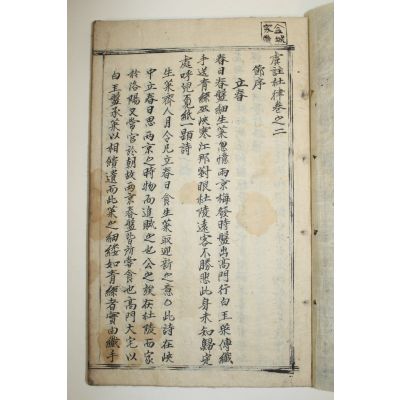 虞註杜律卷之二
節序
立春
春日春盤細生菜忽憶兩京梅發時盤出高門行白玉菜傳纖
手送青絲巫峽寒江那對眼杜陵遠客不勝悲此身未知歸定
處呼兒覓紙一題詩
生菜齊人月令凡立春日食生菜取迎新之意○此詩在峽
中立春日思兩京之時物而追賦之也公之族在杜陵而家
於洛陽又嘗官於朝故兩京春盤皆所嘗食也高門大宅以
白玉盤承菜以相饋遺而此菜之細縷如青絲者實由纖手